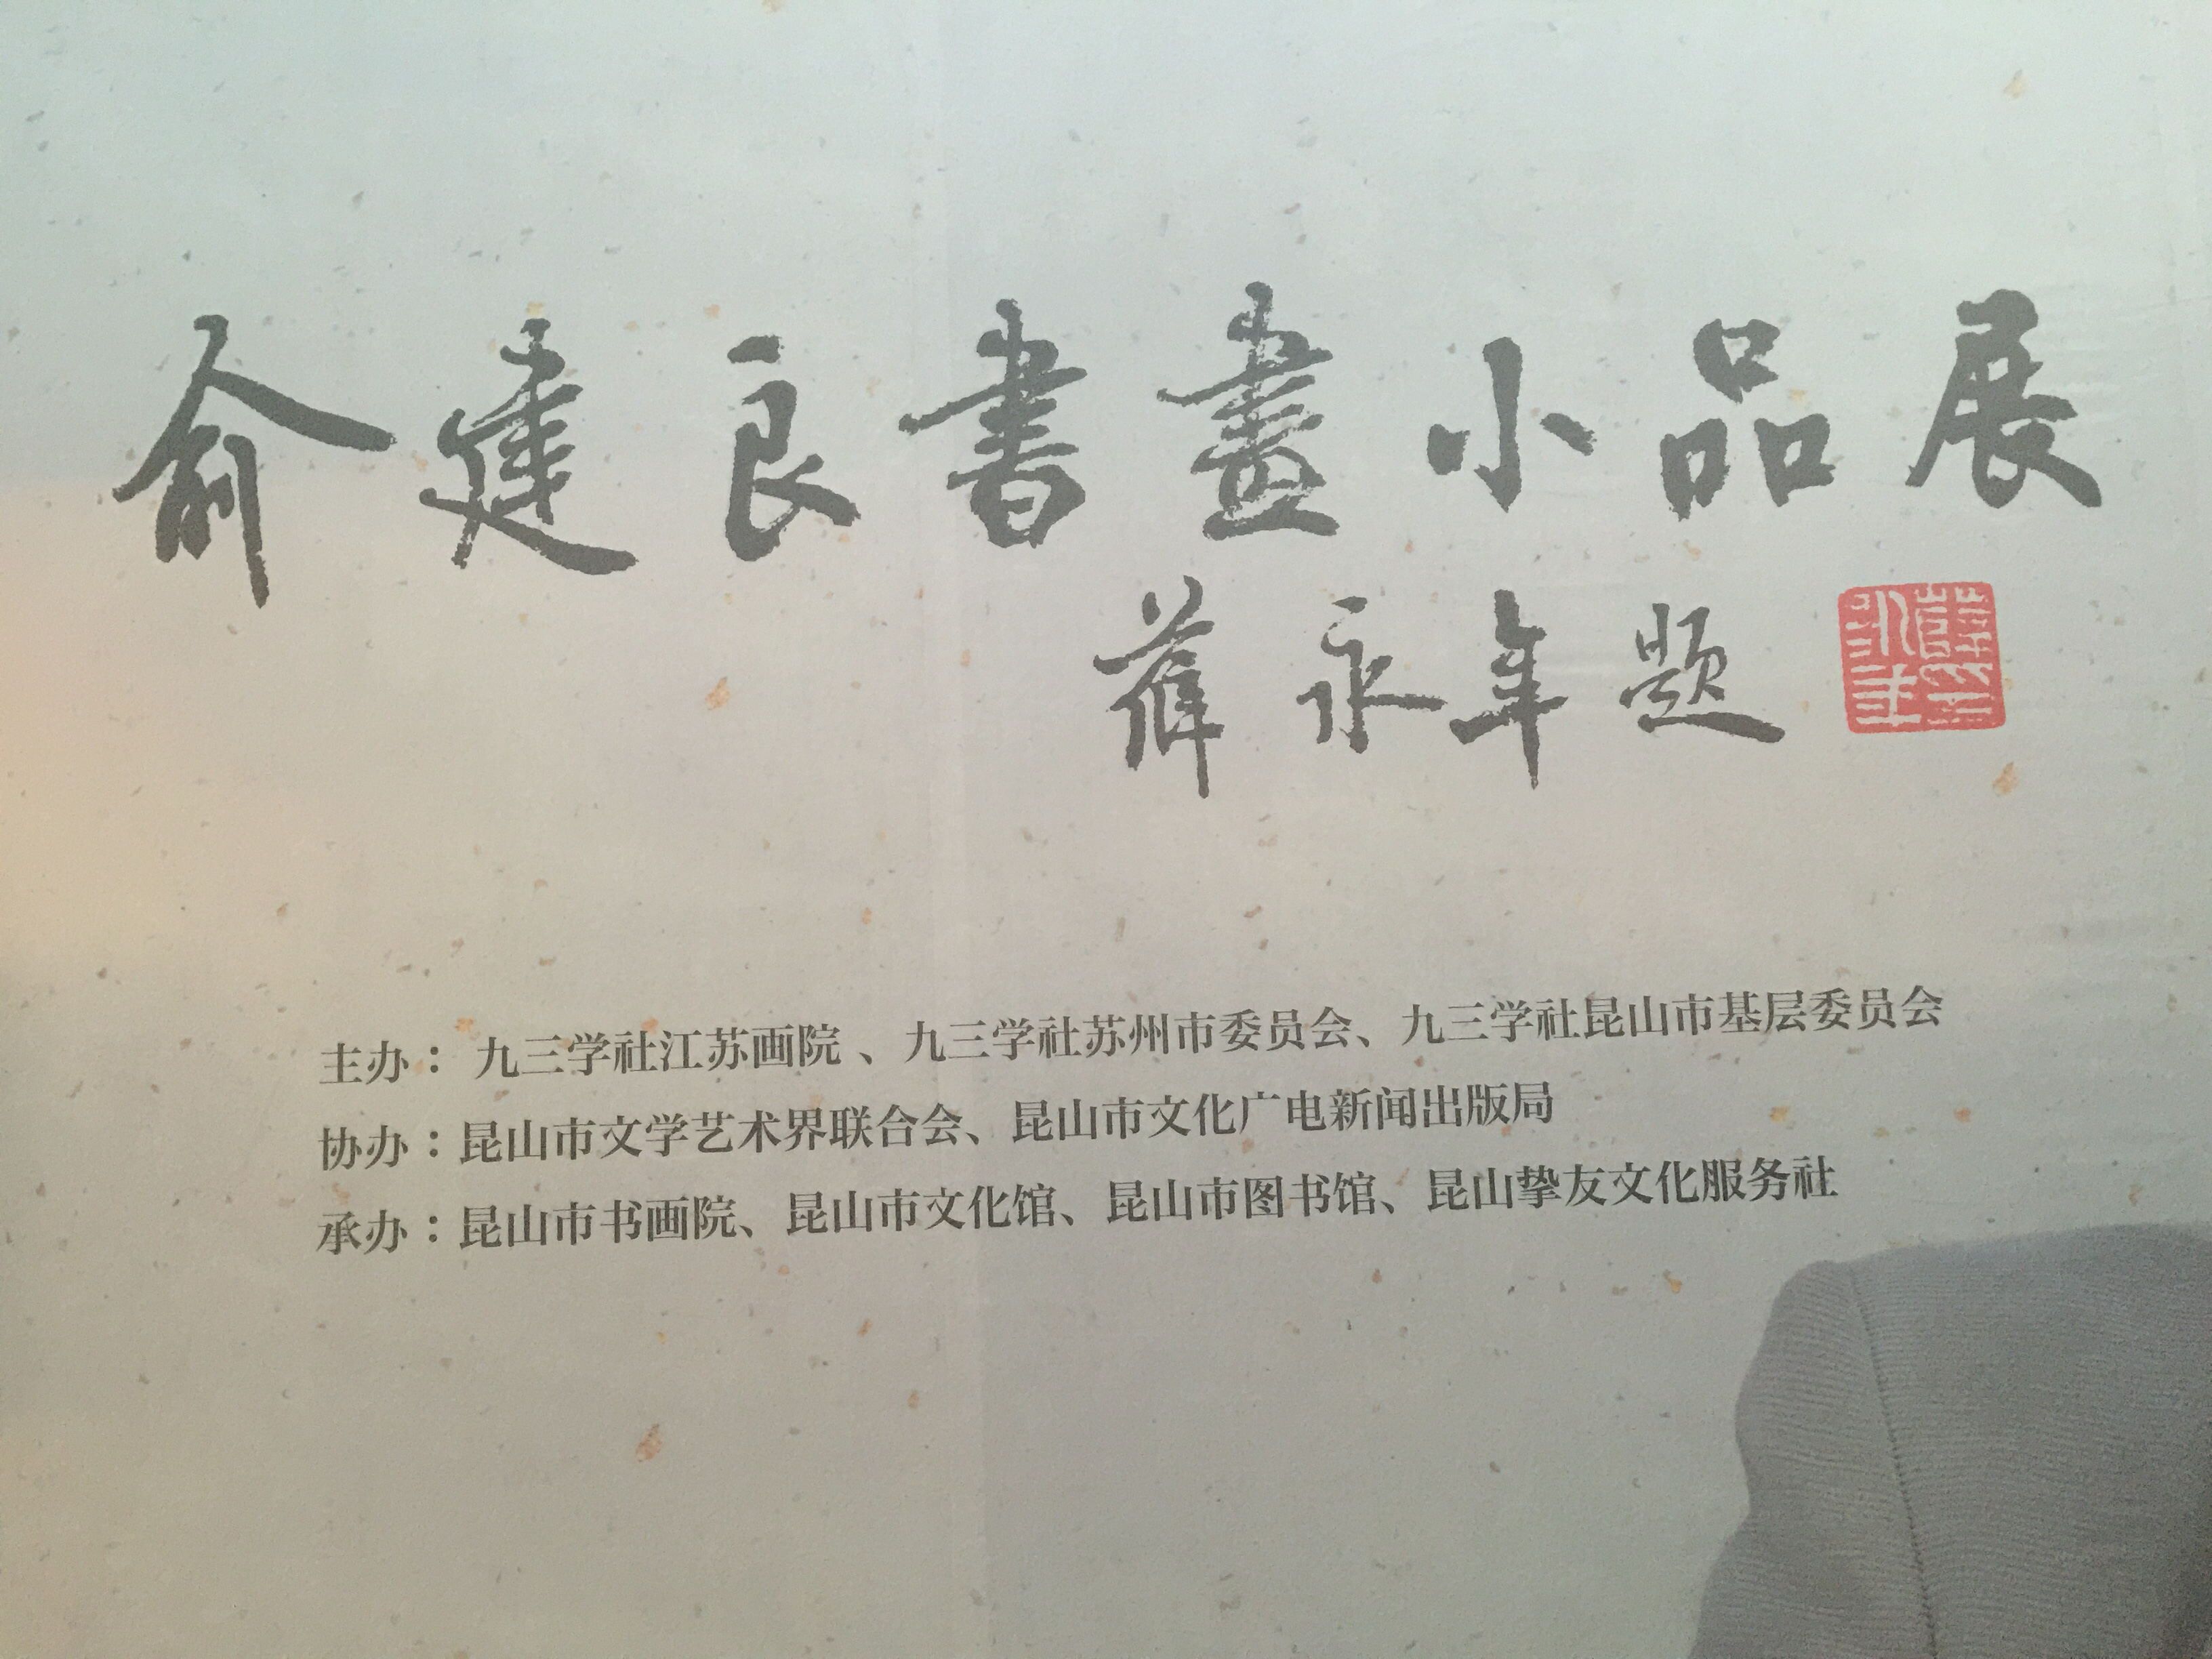 俞建良書畫小品展
薛永年题
主办：九三学社江苏画院、九三学社苏州市委员会、九三学社昆山市基层委员会
协办：昆山市文学艺术界联合会、昆山市文化广电新闻出版局
承办：昆山市书画院、昆山市文化馆、昆山市图书馆、昆山挚友文化服务社